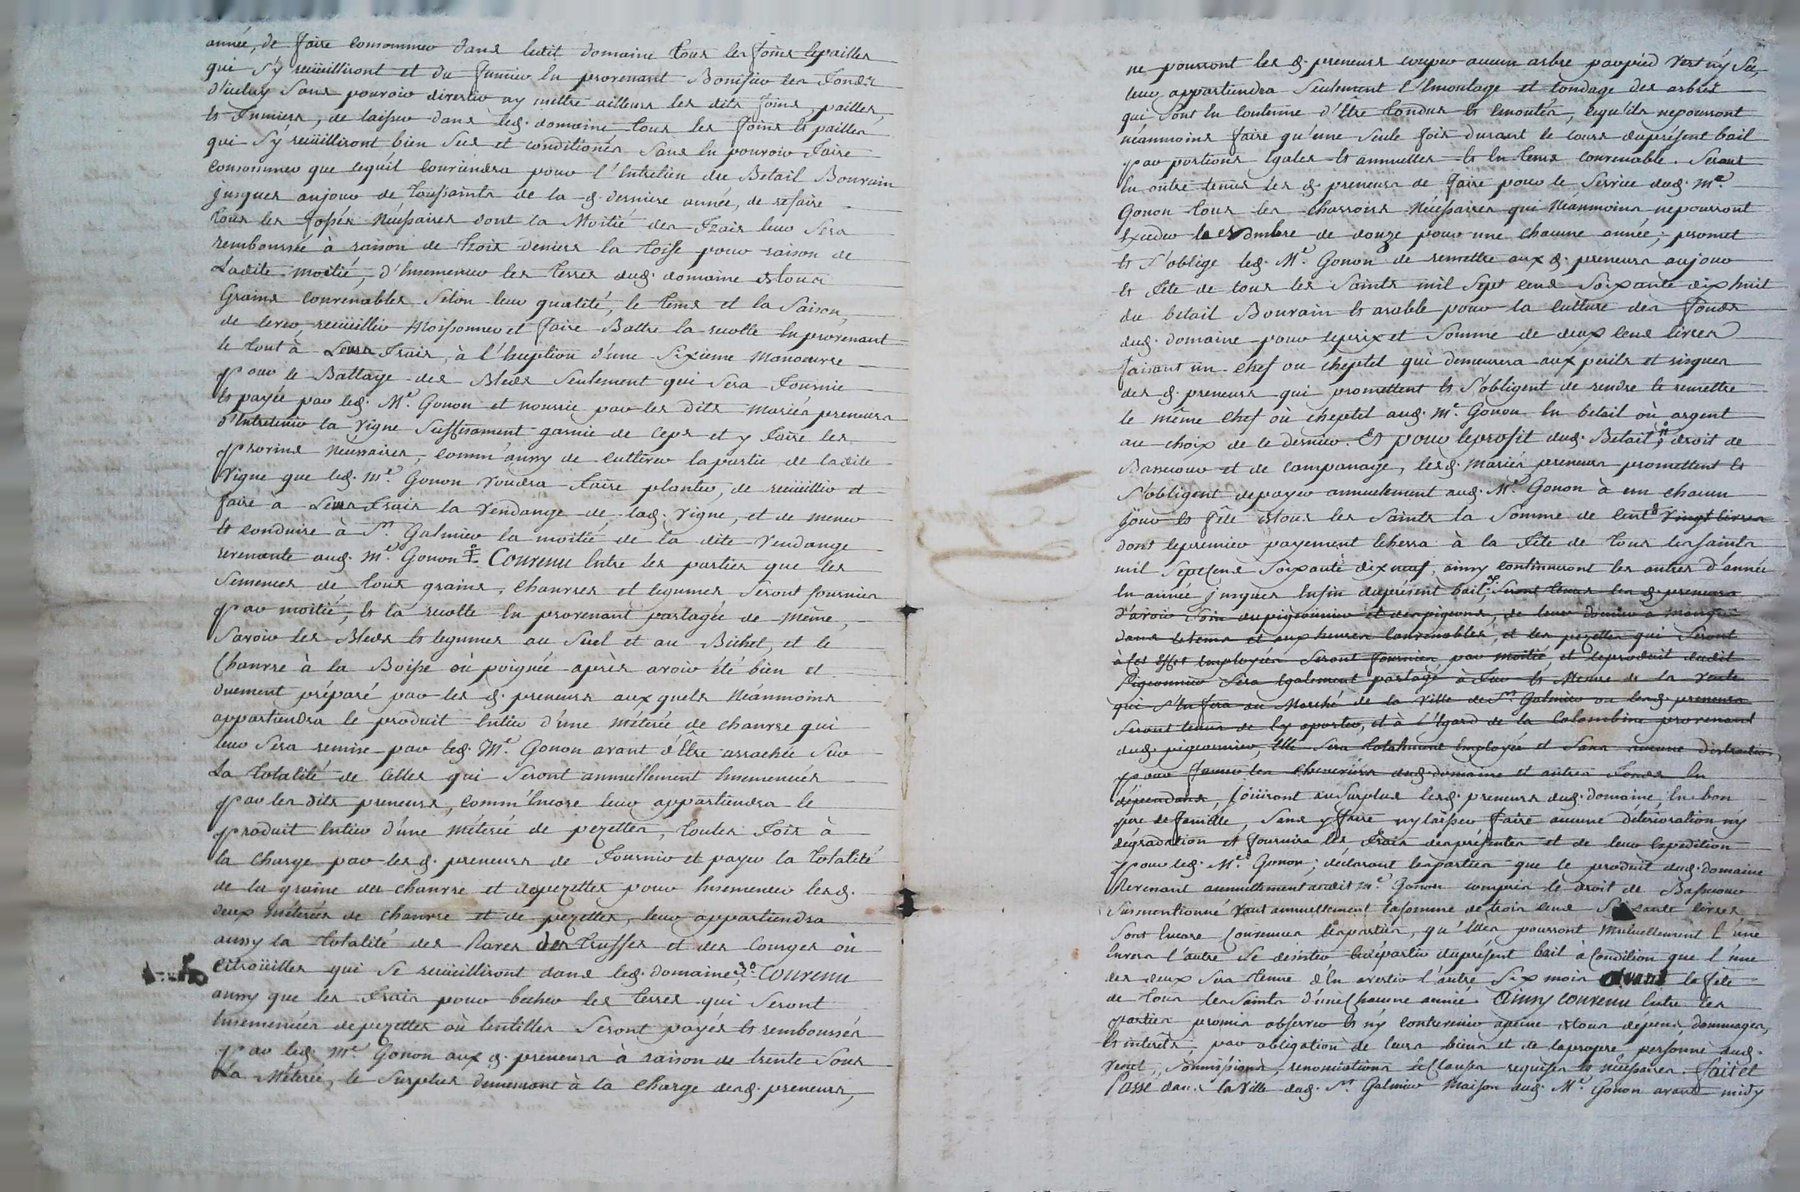 année, de faire consommer dans ledit domaine tous les foins & pailles
qui s'y recüeilliront et du fumier en provenant Bonifier les fonds
d'iceluy sans pouvoir divertir ny mettre ailleurs les dits foins, pailles,
et fumiers, de laisser dans led. domaine tous les foins et pailles
qui s'y recüeilliront bien secs et conditionés sans en pouvoir faire
consommer que ce qu'il conviendra pour l'entretien du Betail Bouvain
jusques au jour de Toussaints de la d. derniere année, de refaire
tous les fossés nécessaires dont la Moitié des fraix leur sera
remboursée à raison de trois deniers la toise pour raison de
Ladite moitié, d'Ensemencer les terres dud. domaine de tous
Grains convenables selon leur qualité, le tems et la saison,
de lever, recüeillir Moissonner et faire Battre la recolte en provenant
le tout à Leurs fraix, à l'exception d'une sixieme Manoeuvre
pour le Battage des Bleds seulement qui sera fournie
et payée par led. Me Gonon et nourie par les dits mariés preneurs
d'Entretenir la vigne suffisament garnie de ceps et y faire les
provins nécessaires, comm'aussy de cultiver la partie de ladite
vigne que led. Me Gonon voudra faire planter, de recüeillir et
faire à Leurs fraix la vendange de lad. vigne, et de mener
et conduire à St Galmier la moitié de la dite vendange
revenante aud. Me Gonon Convenu Entre les parties que les
semences de tous grains, chanvres et legumes seront fournies
par moitié, et la recolte en provenant partagée de même,
savoir les Bleds et legumes au suel et au Bichet, et le
Chanvre à la Boisse où poignée après avoir été bien et
duement préparé par les d. preneurs aux quels néanmoins
appartiendra le produit entier d'une méterée de chanvre qui
leur sera remise par led. Me Gonon avant d'être arrachée sur
La totalité de celles qui seront annuellement Ensemencées
par les dits preneurs, comm'Encore leur appartiendra le
produit entier d'une méterée de pezettes, toutes fois à
la charge par les d. preneurs de fournir et payer la totalité
de la graine du chanvre et de pezettes pour Ensemencer les d.
deux méterées de chanvre et de pezettes, leur appartiendra
aussy la totalité des Raves des truffes et des courges où
citroüilles qui se recüeilliront dans led. domaine, Convenu
aussy que les fraix pour becher les terres qui seront
Ensemencées de pezettes où lentilles seront payés et remboursés
par led. Me Gonon aux d. preneurs à raison de trente sous
La Méterée, le surplus demeurant à la charge desd. preneurs,
ne pourront les d. preneurs couper aucun arbre par pied vert ny sec,
leur appartiendra seulement l'Emontage et tondage des arbres
qui sont en coutume d'être tondus et emontés, ce qu'ils ne pouront
néanmoins faire qu'une seule fois durant le cours du présent bail
par portions égales et annuelles et en tems convenable. Seront
En outre tenus les d. preneurs de faire pour le service dud. Me
Gonon tous les charrois Nécessaires qui néanmoins ne pourront
exceder le nombre de douze pour une chacune année, promet
et s'oblige led. Me Gonon de remettre aux d. preneurs au jour
et fête de tous les saints mil sept cens soixante dix huit
du betail Bouvain et arable pour la culture des fonds
dud. domaine pour le prix et somme de deux cens livres
faisant un chef ou cheptel qui demeurera aux perils et risques
des d. preneurs qui promettent et s'obligent de rendre et remettre
le même chef où cheptel aud. Me Gonon En betail où argent
au choix de ce dernier. Et pour le profit dud. Betail, droit de
Bassecour et de campanage, les d. mariés preneurs promettent et
s'obligent de payer annuelement aud. Me Gonon à un chacun
jour et fête de tous les saints la somme de cent vingt livres
dont le premier payement echerra à la fête de tous les saints
mil sept cens soixante dix neuf, ainsy continueront les autres d'année
en année jusques enfin du présent bail. Seront tenus les d. preneurs
d'avoir soin du pigeonnier et des pigeons, de leur donner à manger
dans le tems et aux heures convenables, et les pezettes qui seront
à cet effet employées seront fournies par moitié, et le produit dudit
Pigeonnier sera également partagé à fur et mesure de la vente
qui s'en fera au Marché de la ville de St Galmier ou les d. preneurs
seront tenus de les aporter, et à l'égard de la colombine provenant
dud. pigeonnier Elle sera totalement employée et sans aucune distraction
pour fumer les chenevieres dud. domaine et autres fonds en
dépendans, joüiront au surplus les d. preneurs dud. domaine en bon
pere de famille, sans y faire ny laisser faire aucune détérioration ny
dégradation et fourniront les fraix des présentes et de leur Expédition
pour led. Me Gonon; déclarant les parties que le produit dud. domaine
Revenant annuellement audit Me Gonon compris le droit de Bassecour
susmentionné vaut annuellement la somme de trois cens soixante livres
sont Encore convenues les parties, qu'Elles pourront mutuellement l'une
Envers l'autre se desister du présent bail à condition que l'une
des deux sera tenue d'en avertir l'autre six mois avant la fête
de tous les saints d'une chacune année. Ainsy convenu Entre les
parties promis observer et n'y contrevenir à peine de tous dépens, dommages,
et interêts par obligation de leurs biens et de la propre personne dud.
soumissions, renonciations et clauses requises et nécessaires. fait et
Passé dans la ville dud. St Galmier Maison dud. Me Gonon avant midy